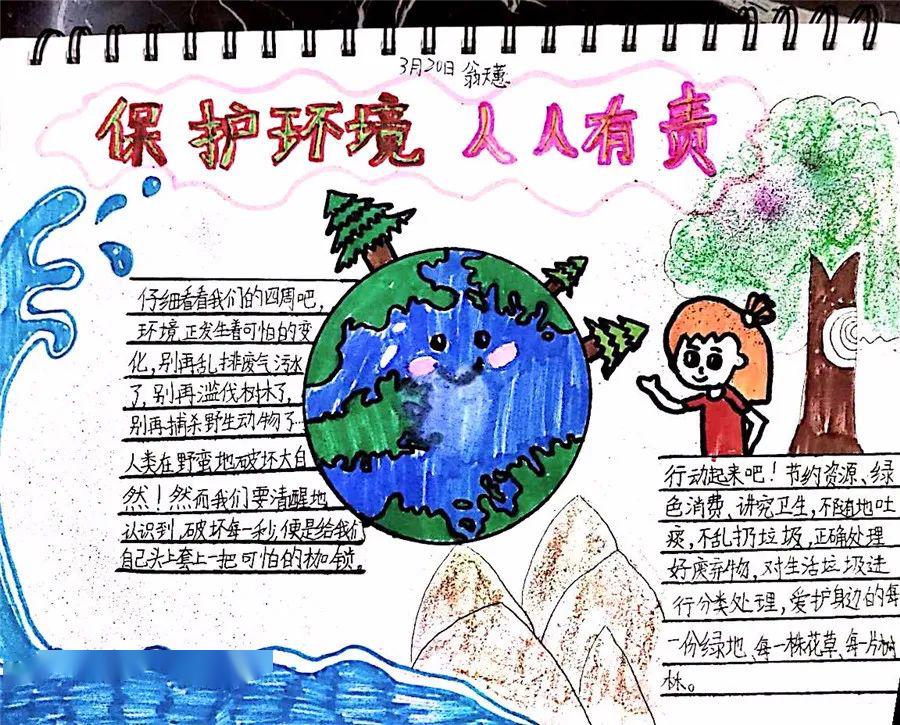 3月20日 翁天蕙
保护环境 人人有责
仔细看看我们的四周吧,
环境正发生着可怕的变
化,别再乱排废气污水
了,别再滥伐树林了,
别再捕杀野生动物了…
人类在野蛮地破坏大自
然!然而我们要清醒地
认识到,破坏每一秒,便是给我们
自己头上套上一把可怕的枷锁。
行动起来吧!节约资源、绿
色消费、讲究卫生,不随地吐
痰,不乱扔垃圾,正确处理
好废弃物,对生活垃圾进
行分类处理,爱护身边的每
一份绿地、每一株花草、每一片树
林。